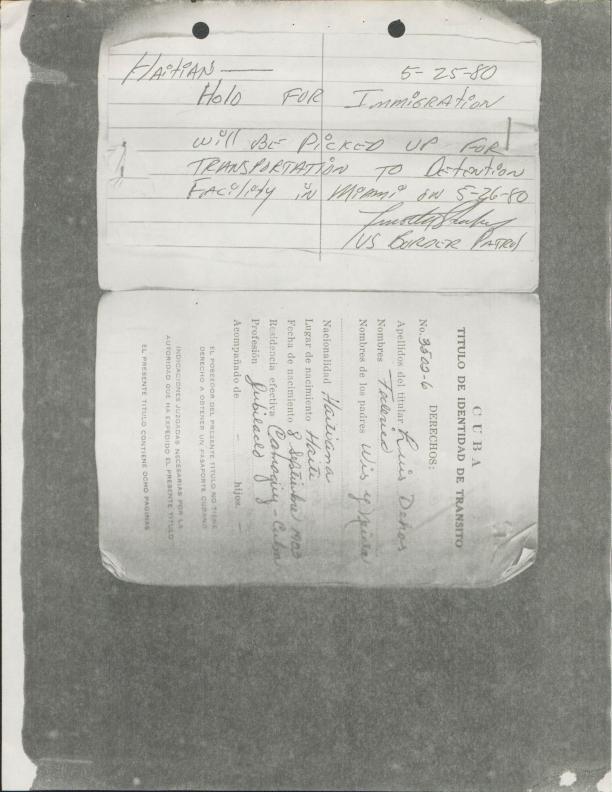 HAitiAN — 5-25-80
Hold FOR ImmigRAtion
will BE PicKED UP FOR
TRANSPORTATION TO Detention
FAcility iN Miami oN 5-26-80
Timothy
US BORDER PATROl
CUBA
TITULO DE IDENTIDAD DE TRANSITO
No. 3500-6 DERECHOS:
Apellidos del titular Luis Dehas
Nombres Federico
Nombres de los padres Wis y
Nacionalidad Haitiana
Lugar de nacimiento Haiti
Fecha de nacimiento 8 Septiembre 1903
Residencia efectiva Camaguey - Cuba
Profesión Jubilado
Acompañado de - hijos. -
EL POSEEDOR DEL PRESENTE TITULO NO TIENE
DERECHO A OBTENER UN PASAPORTE CUBANO
INDICACIONES JUZGADAS NECESARIAS POR LA
AUTORIDAD QUE HA EXPEDIDO EL PRESENTE TITULO
EL PRESENTE TITULO CONTIENE OCHO PAGINAS